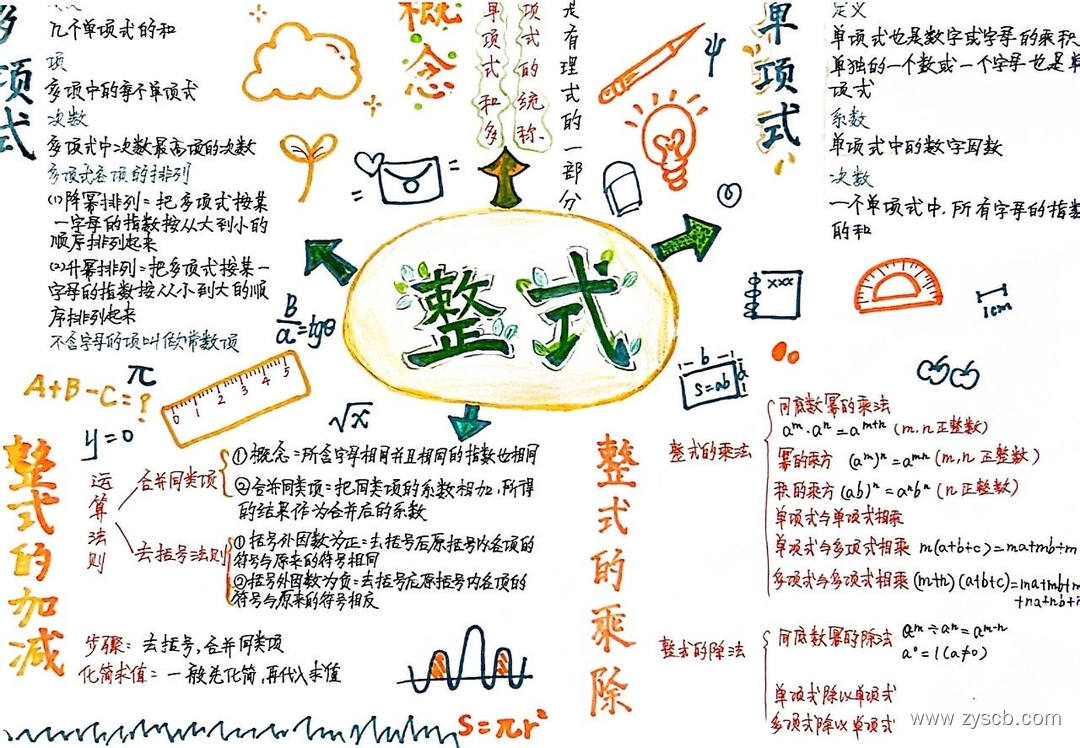 多项式
几个单项式的和
项
多项中的每个单项式
次数
多项式中次数最高项的次数
多项式各项的排列
(1)降幂排列=把多项式按某
一字母的指数按从大到小的
顺序排列起来
(2)升幂排列=把多项式按某一
字母的指数按从小到大的顺
序排列起来
不含字母的项叫做常数项
概念
单项式和多
项式的统称
是有理式的一部分
ψ
单项式
定义
单项式也是数字或字母的乘积
单独的一个数或一个字母也是单
项式
系数
单项式中的数字因数
次数
一个单项式中,所有字母的指数
的和
整式
B/a=tgθ
xxx
1cm
b
a
S=ab
A+B-C=?
π
y=0
0 1 2 3 4 5
√x
整式的加减
运算法则
合并同类项
①概念=所含字母相同并且相同的指数也相同
②合并同类项=把同类项的系数相加,所得
的结果作为合并后的系数
去括号法则
①括号外因数为正=去括号后原括号内各项的
符号与原来的符号相同
②括号外因数为负=去括号后原括号内各项的
符号与原来的符号相反
步骤: 去括号,合并同类项
化简求值= 一般先化简,再代入求值
S=πr²
整式的乘除
整式的乘法
同底数幂的乘法
aᵐ·aⁿ=aᵐ⁺ⁿ (m,n正整数)
幂的乘方 (aᵐ)ⁿ=aᵐⁿ (m,n 正整数)
积的乘方 (ab)ⁿ=aⁿbⁿ (n正整数)
单项式与单项式相乘
单项式与多项式相乘 m(a+b+c)=ma+mb+m
多项式与多项式相乘 (m+n)(a+b+c)=ma+mb+m
+na+nb+n
整式的除法
同底数幂的除法 aᵐ÷aⁿ=aᵐ⁻ⁿ
a⁰=1(a≠0)
单项式除以单项式
多项式除以单项式
www.zyscb.com